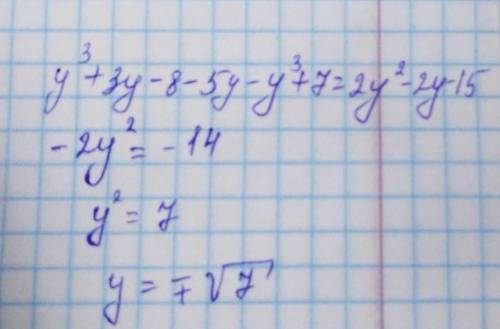 y³+3y-8-5y-y³+7=2y²-2y-15
-2y²=-14
y²=7
y=∓√7